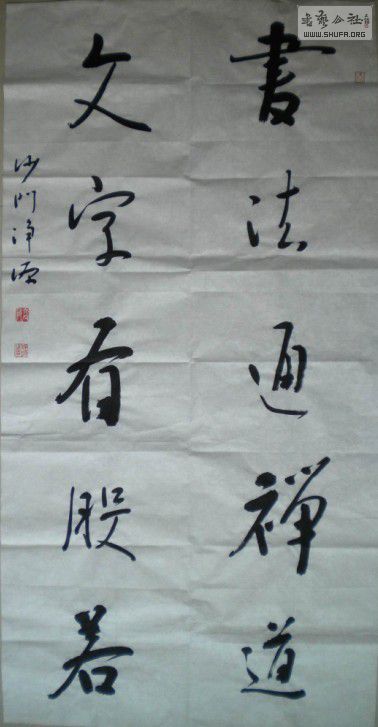 書法通禪道
文字有般若
沙門淨
書藝公社
WWW.SHUFA.ORG